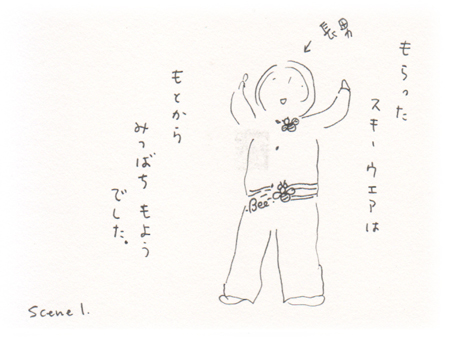 長男
もらった
スキーウエアは
もとから
みつばち もよう
でした。
Bee
Scene 1.